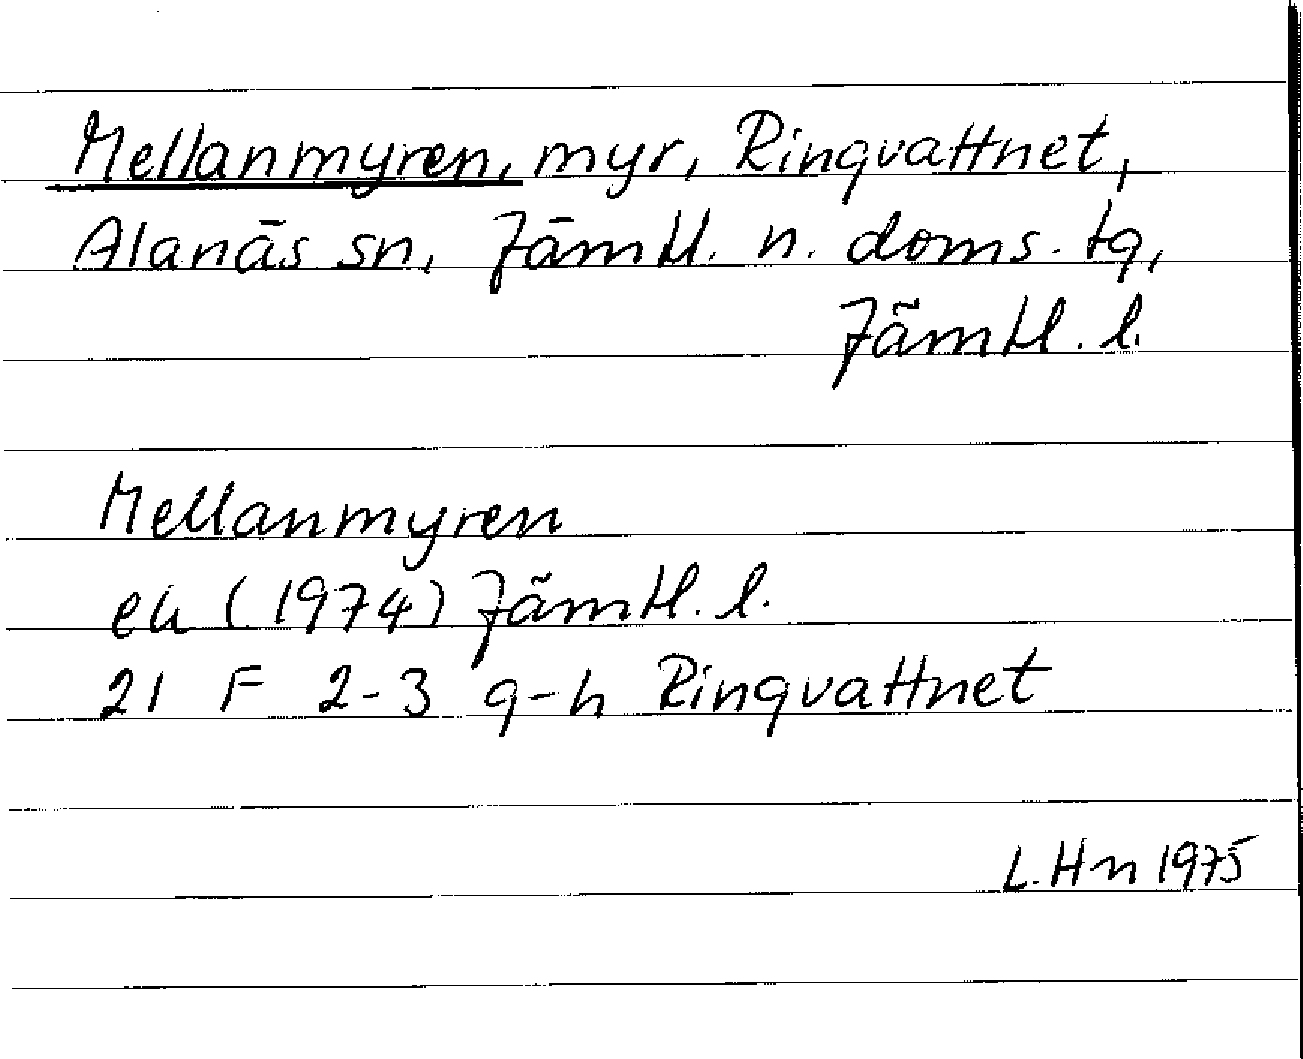 Mellanmyren, myr, Ringvattnet,
Alanäs sn, Jämtl. n. doms. tg,
Jämtl. l.
Mellanmyren
ek (1974) Jämtl. l.
21 F 2-3 g-h Ringvattnet
L. Hn 1975